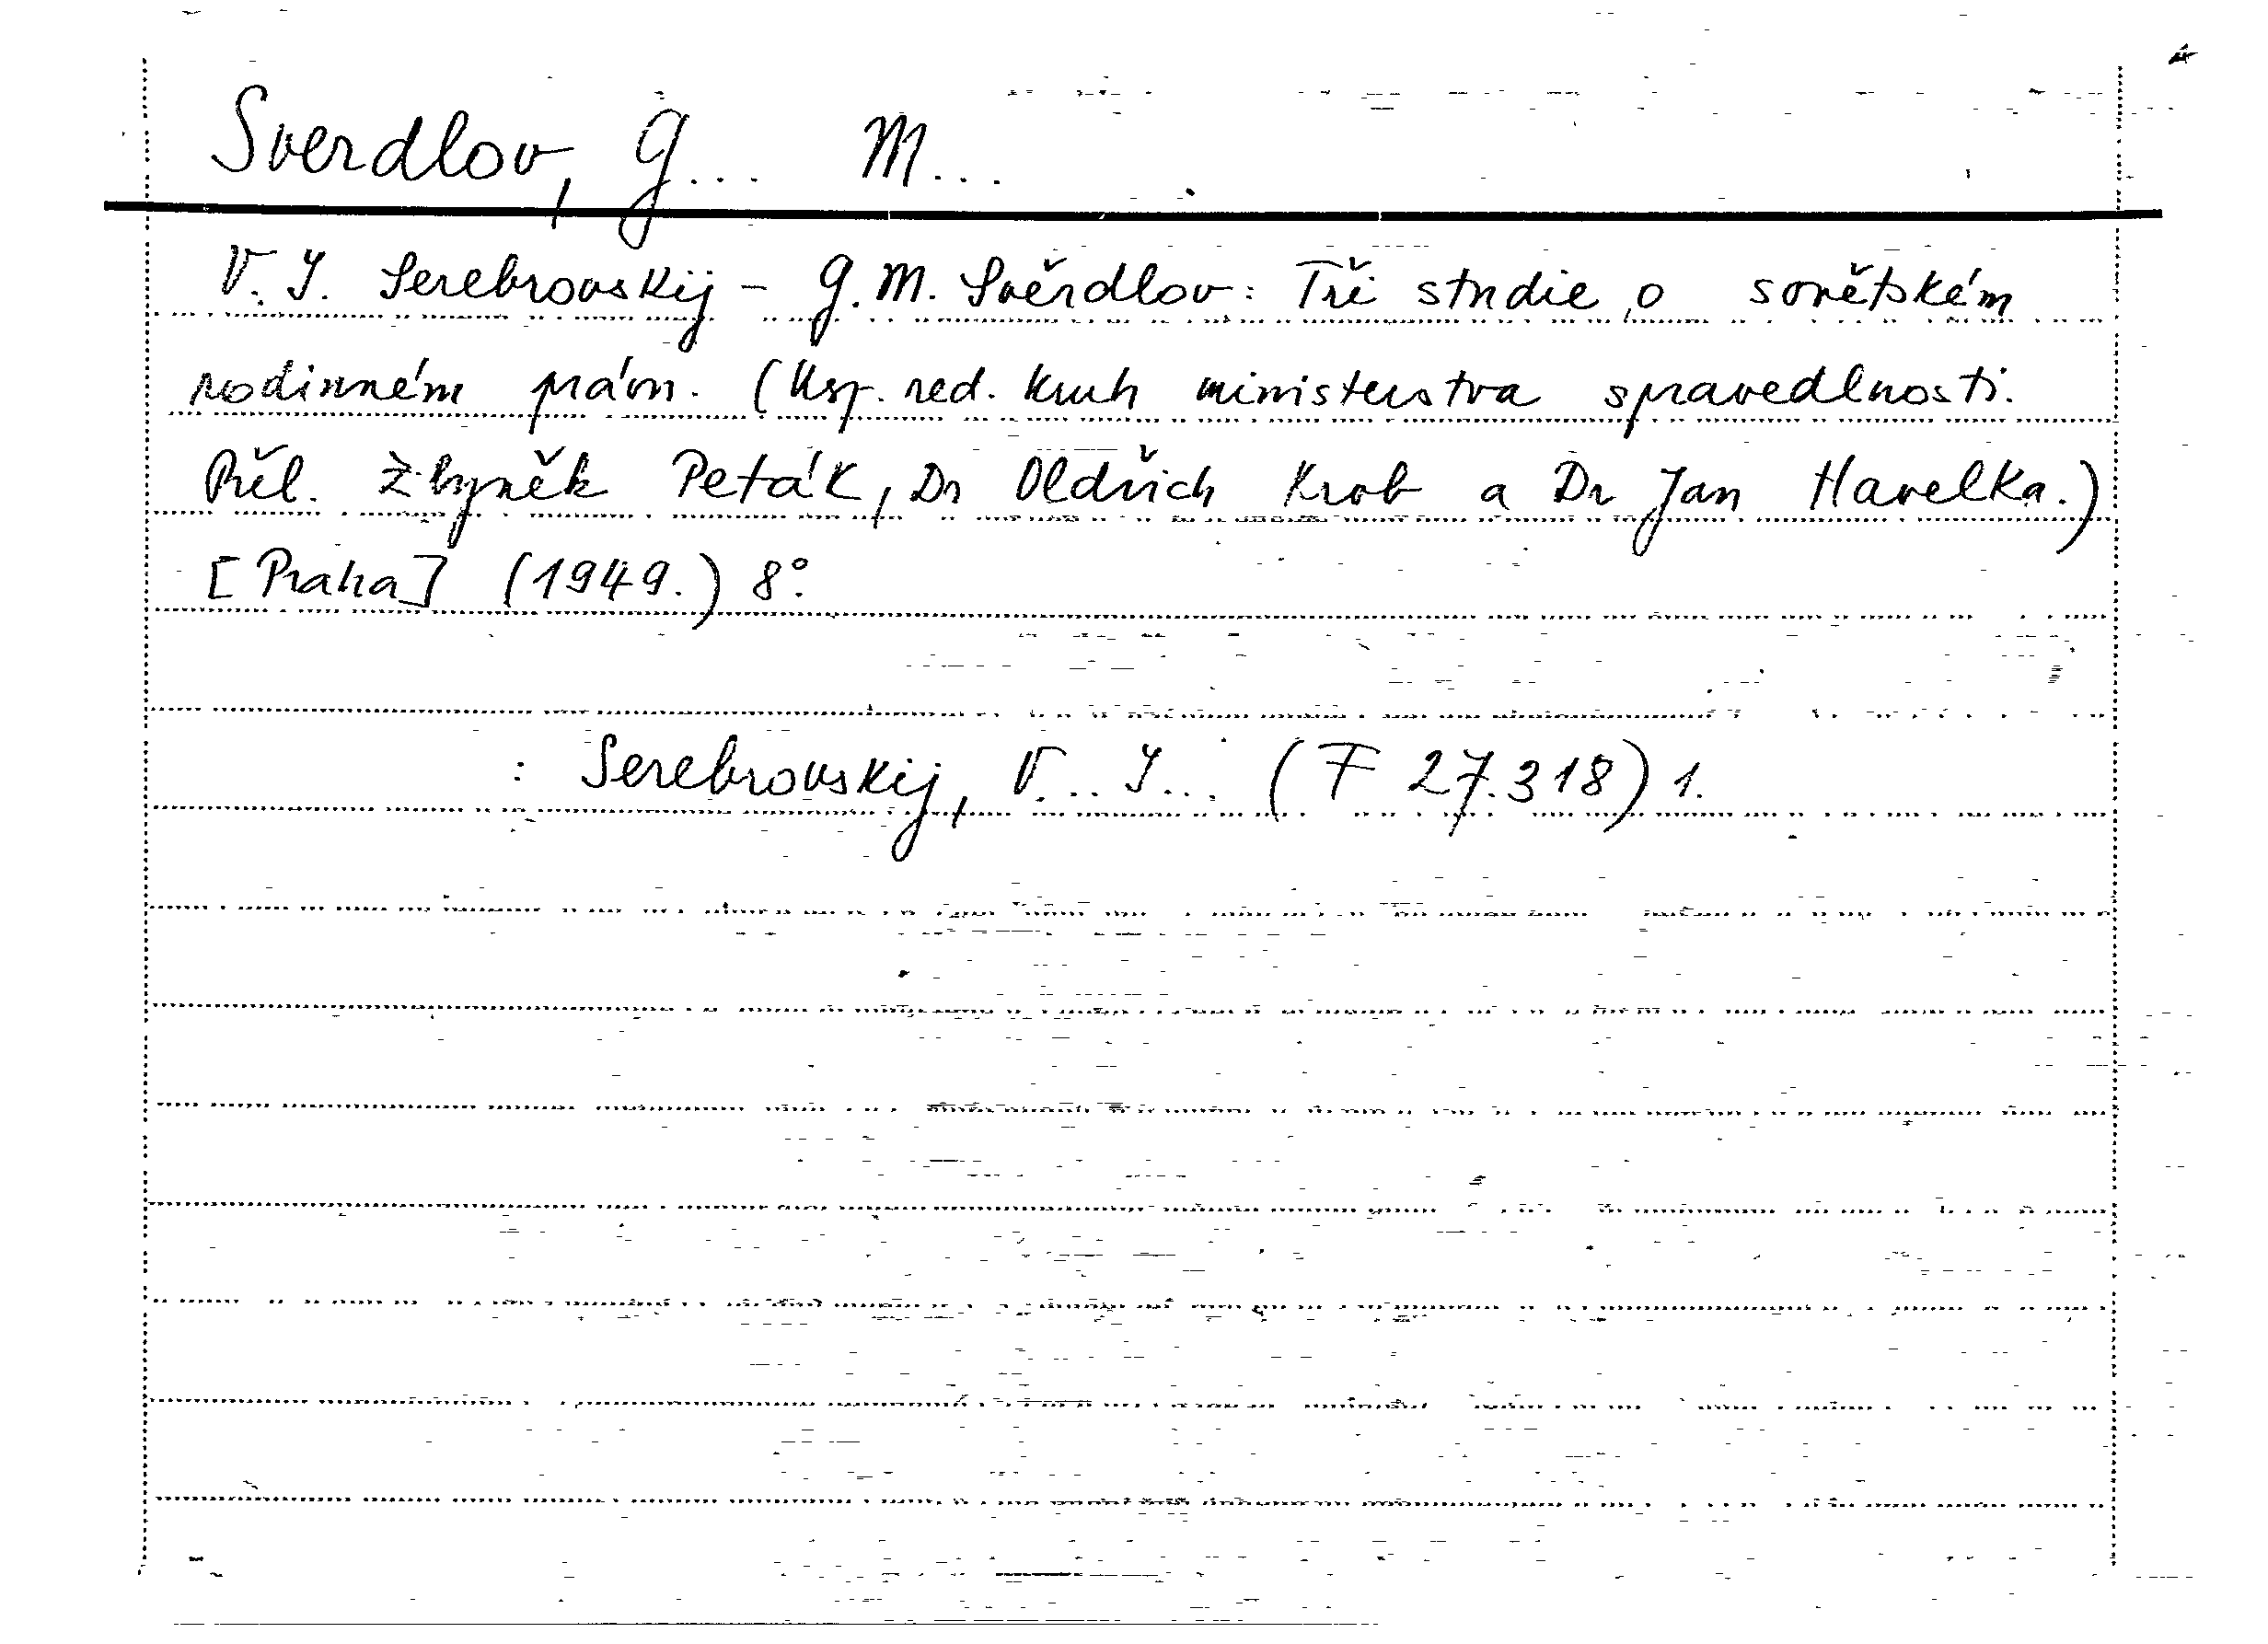 Sverdlov, G... M...
V. I. Serebrovskij - G. M. Svěrdlov: Tři studie o sovětském
rodinném právu. (Usp. red. kruh ministerstva spravedlnosti.
Přel. Zbyněk Peták, Dr Oldřich Krob a Dr Jan Havelka.)
[Praha] (1949.) 8°.
: Serebrovskij, V... I... (F 27.318) 1.